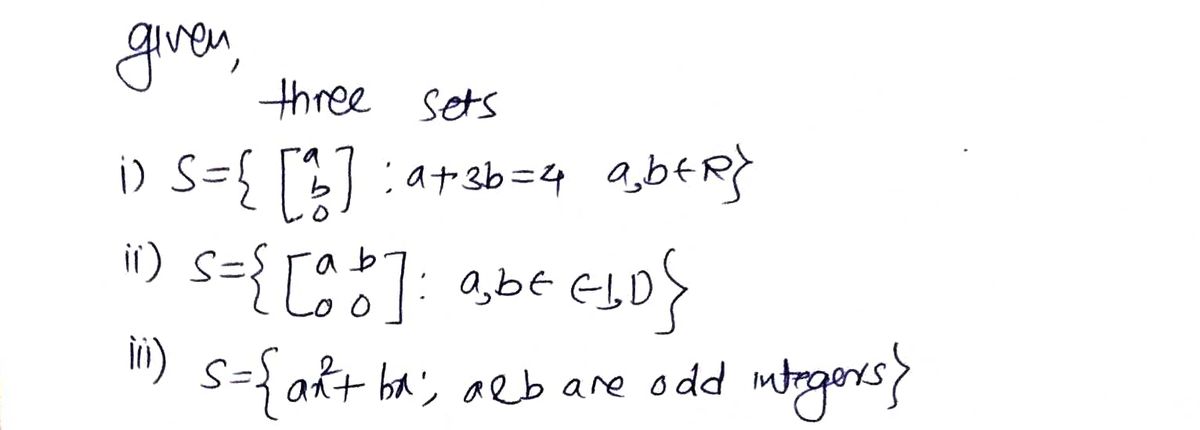 given,
three sets
i) S={ [a b 0] : a+3b=4 a,b∈R}
ii) S={ [a b 0 0] : a,b∈ (-1,1)}
iii) S={ax²+bx; a&b are odd integers}